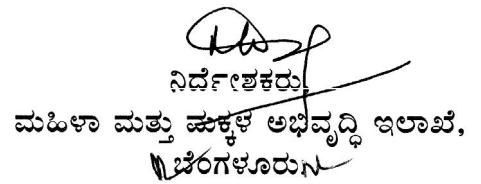 ನಿರ್ದೇಶಕರು
ಮಹಿಳಾ ಮತ್ತು ಮಕ್ಕಳ ಅಭಿವೃದ್ಧಿ ಇಲಾಖೆ,
ಬೆಂಗಳೂರು